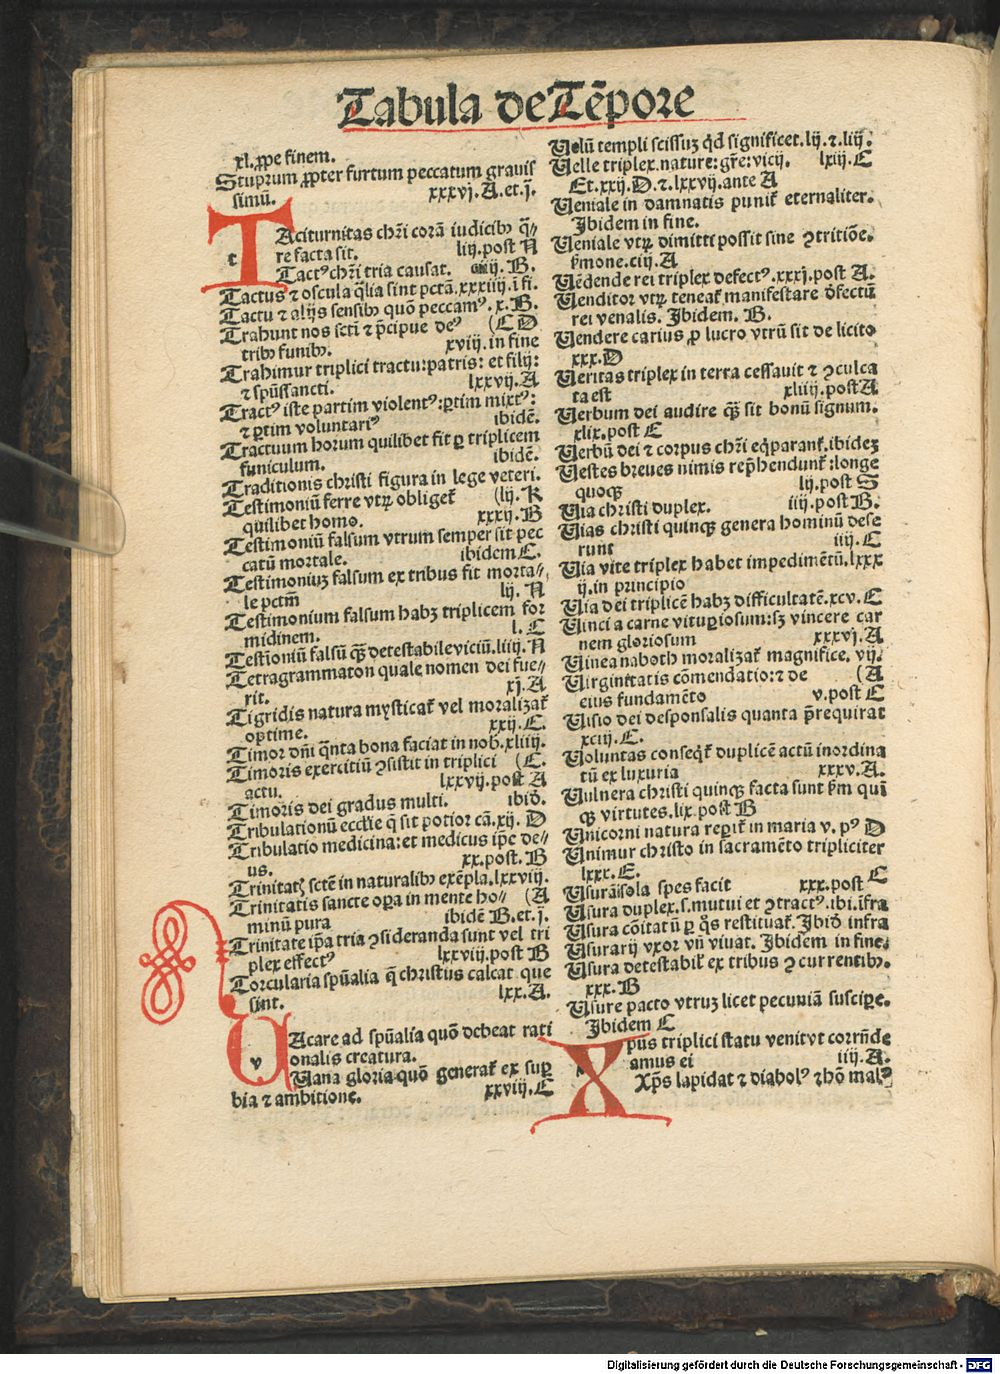 Tabula de Tēpore
xl. ꝓpe finem.
Stuprum ꝓpter furtum peccatum grauis
simū. xxxvj. A. et. j.
TAciturnitas chr̄i corā iudicibꝰ q̄-
t re facta sit. liij. post N
Tactꝰ chr̄i tria causat. iiij. B.
Tactus ⁊ oscula q̄lia sint pctā. xxxiiij. i. fi.
Tactu ⁊ alijs sensibꝰ quō peccamꝰ. x. B.
Trahunt nos scti ⁊ p̄cipue deꝰ (C D
tribꝰ funibꝰ. xviij. in fine
Trahimur triplici tractu: patris: et filij:
⁊ spūssancti. lxxvij. A
Tractꝰ iste partim violentꝰ: ꝑtim mixtꝰ:
⁊ ꝑtim voluntariꝰ ibidē.
Tractuum horum quilibet fit ꝑ triplicem
funiculum. ibidē.
Traditionis christi figura in lege veteri.
Testimoniū ferre vtꝝ obliget̄ (lij. K
quilibet homo. xxxij. B
Testimoniū falsum vtrum semper sit pec
catū mortale. ibidem C.
Testimoniuꝫ falsum ex tribus fit morta-
le pctm̄ lij. N
Testimonium falsum habꝫ triplicem for
midinem. l. C
Testiōniū falsū qꝫ detestabile viciū. liiij. N
Tetragrammaton quale nomen dei fue-
rit. xj. A
Tigridis natura mysticat̄ vel moralizat̄
optime. xxij. C.
Timor dn̄i q̄nta bona faciat in nob. xliiij.
Timoris exercitiū ꝯsistit in triplici (C.
actu. lxxvij. post A
Timoris dei gradus multi. ibid̄.
Tribulationū ecclie q̄ sit potior cā. xij. D
Tribulatio medicina: et medicus ip̄e de-
us. xx. post. B
Trinitatꝭ sctē in naturalibꝰ exēpla. lxxviij.
Trinitatis sancte oꝑa in mente ho- (A
minū pura ibidē B. et. j.
Trinitate ip̄a tria ꝯsideranda sunt vel tri
plex effectꝰ lxxviij. post B
Torcularia spūalia q̄ christus calcat que
sint. lxx. A.
UAcare ad spūalia quō debeat rati
v onalis creatura.
Uana gloria quō generat̄ ex suꝑ
bia ⁊ ambitione. xxviij. C
Uelū templi scissuꝫ qd̄ significet. lij. ⁊ liij.
Uelle triplex. nature: gr̄e: vicij. lxiij. C
Et. xxij. D. ⁊. lxxvij. ante A
Ueniale in damnatis punit̄ eternaliter.
Ibidem in fine.
Ueniale vtꝝ dimitti possit sine ꝯtritiōe.
s̄mone. ciij. A
Uēdende rei triplex defectꝰ. xxxj. post A.
Uenditor vtꝝ teneat̄ manifestare d̄fectū
rei venalis. Ibidem. B.
Uendere carius ꝓ lucro vtrū sit de licito
xxx. D
Ueritas triplex in terra cessauit ⁊ ꝯculca
ta est xliiij. post A
Uerbum dei audire qꝫ sit bonū signum.
xlix. post C
Uerbū dei ⁊ corpus chr̄i eq̄parant̄. ibideꝫ
Uestes breues nimis rep̄hendunt̄: longe
quoqꝫ lij. post S
Uia christi duplex. iiij. post B.
Uias christi quinqꝫ genera hominū dese
runt iiij. C
Uia vite triplex habet impedimētū. lxxx
ij. in principio
Uia dei triplicē habꝫ difficultatē. xcv. C
Uinci a carne vituꝑiosum: sꝫ vincere car
nem gloriosum xxxvj. A
Uinea naboth moralizat̄ magnifice. vij.
Uirginitatis cōmendatio: ⁊ de (A
eius fundamēto v. post C
Uisio dei desponsalis quanta p̄requirat
xciij. C.
Uoluntas conseqt̄ duplicē actū inordina
tū ex luxuria xxxv. A.
Uulnera christi quinqꝫ facta sunt s̄m qui
qꝫ virtutes. lix. post B
Unicorni natura reꝑit̄ in maria v. pꝰ D
Unimur christo in sacramēto tripliciter
lxxx. E.
Usurā sola spes facit xxx. post C
Usura duplex. s. mutui et ꝯtractꝰ. ibi. īfra
Usura cōitatū ꝑ q̄s restituat̄. Ibid̄ infra
Usurarij vxor vn̄ viuat. Ibidem in fine.
Usura detestabil̄ ex tribus ꝯcurrentibꝰ.
xxx. B
Usure pacto vtruꝫ licet pecuniā suscipe.
Ibidem C
Xpus triplici statu venit vt corrn̄de
amus ei iiij. A.
Xp̄s lapidat ⁊ diabolꝰ ⁊ hō malꝰ
Digitalisierung gefördert durch die Deutsche Forschungsgemeinschaft - DFG